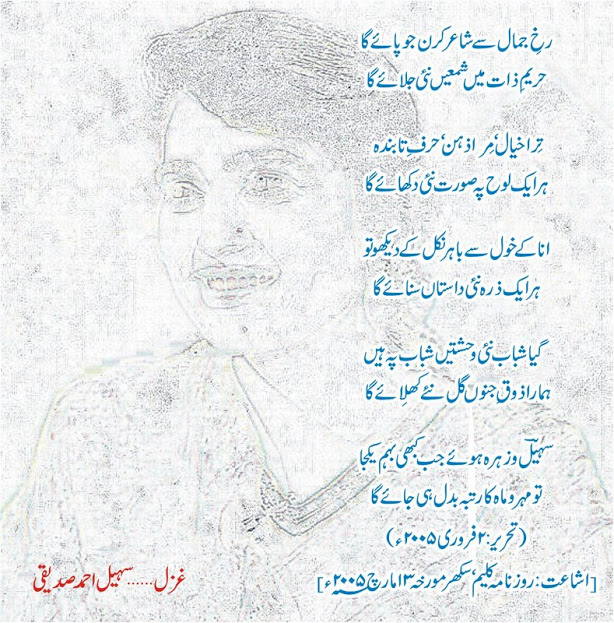 رخِ جمال سے شاعر کرن جو پائے گا
حریمِ ذات میں شمعیں نئی جلائے گا
تِرا خیال، مِرا ذہن، حرفِ تابندہ
ہر ایک لوح پہ صورت نئی دکھائے گا
انا کے خول سے باہر نکل کے دیکھو تو
ہر ایک ذرہ نئی داستاں سنائے گا
گیا شباب نئی وحشتیں شباب پہ ہیں
ہمارا ذوقِ جنوں گل نئے کھِلائے گا
سہیلؔ و زہرہ ہوئے جب کبھی بہم یکجا
تو مہر و ماہ کا رتبہ بدل ہی جائے گا
(تحریر: ۲ فروری ۲۰۰۵ء)
[اشاعت: روزنامہ کلیم، سکھر مورخہ ۱۳ مارچ ۲۰۰۵ء]
غزل......سہیل احمد صدیقی